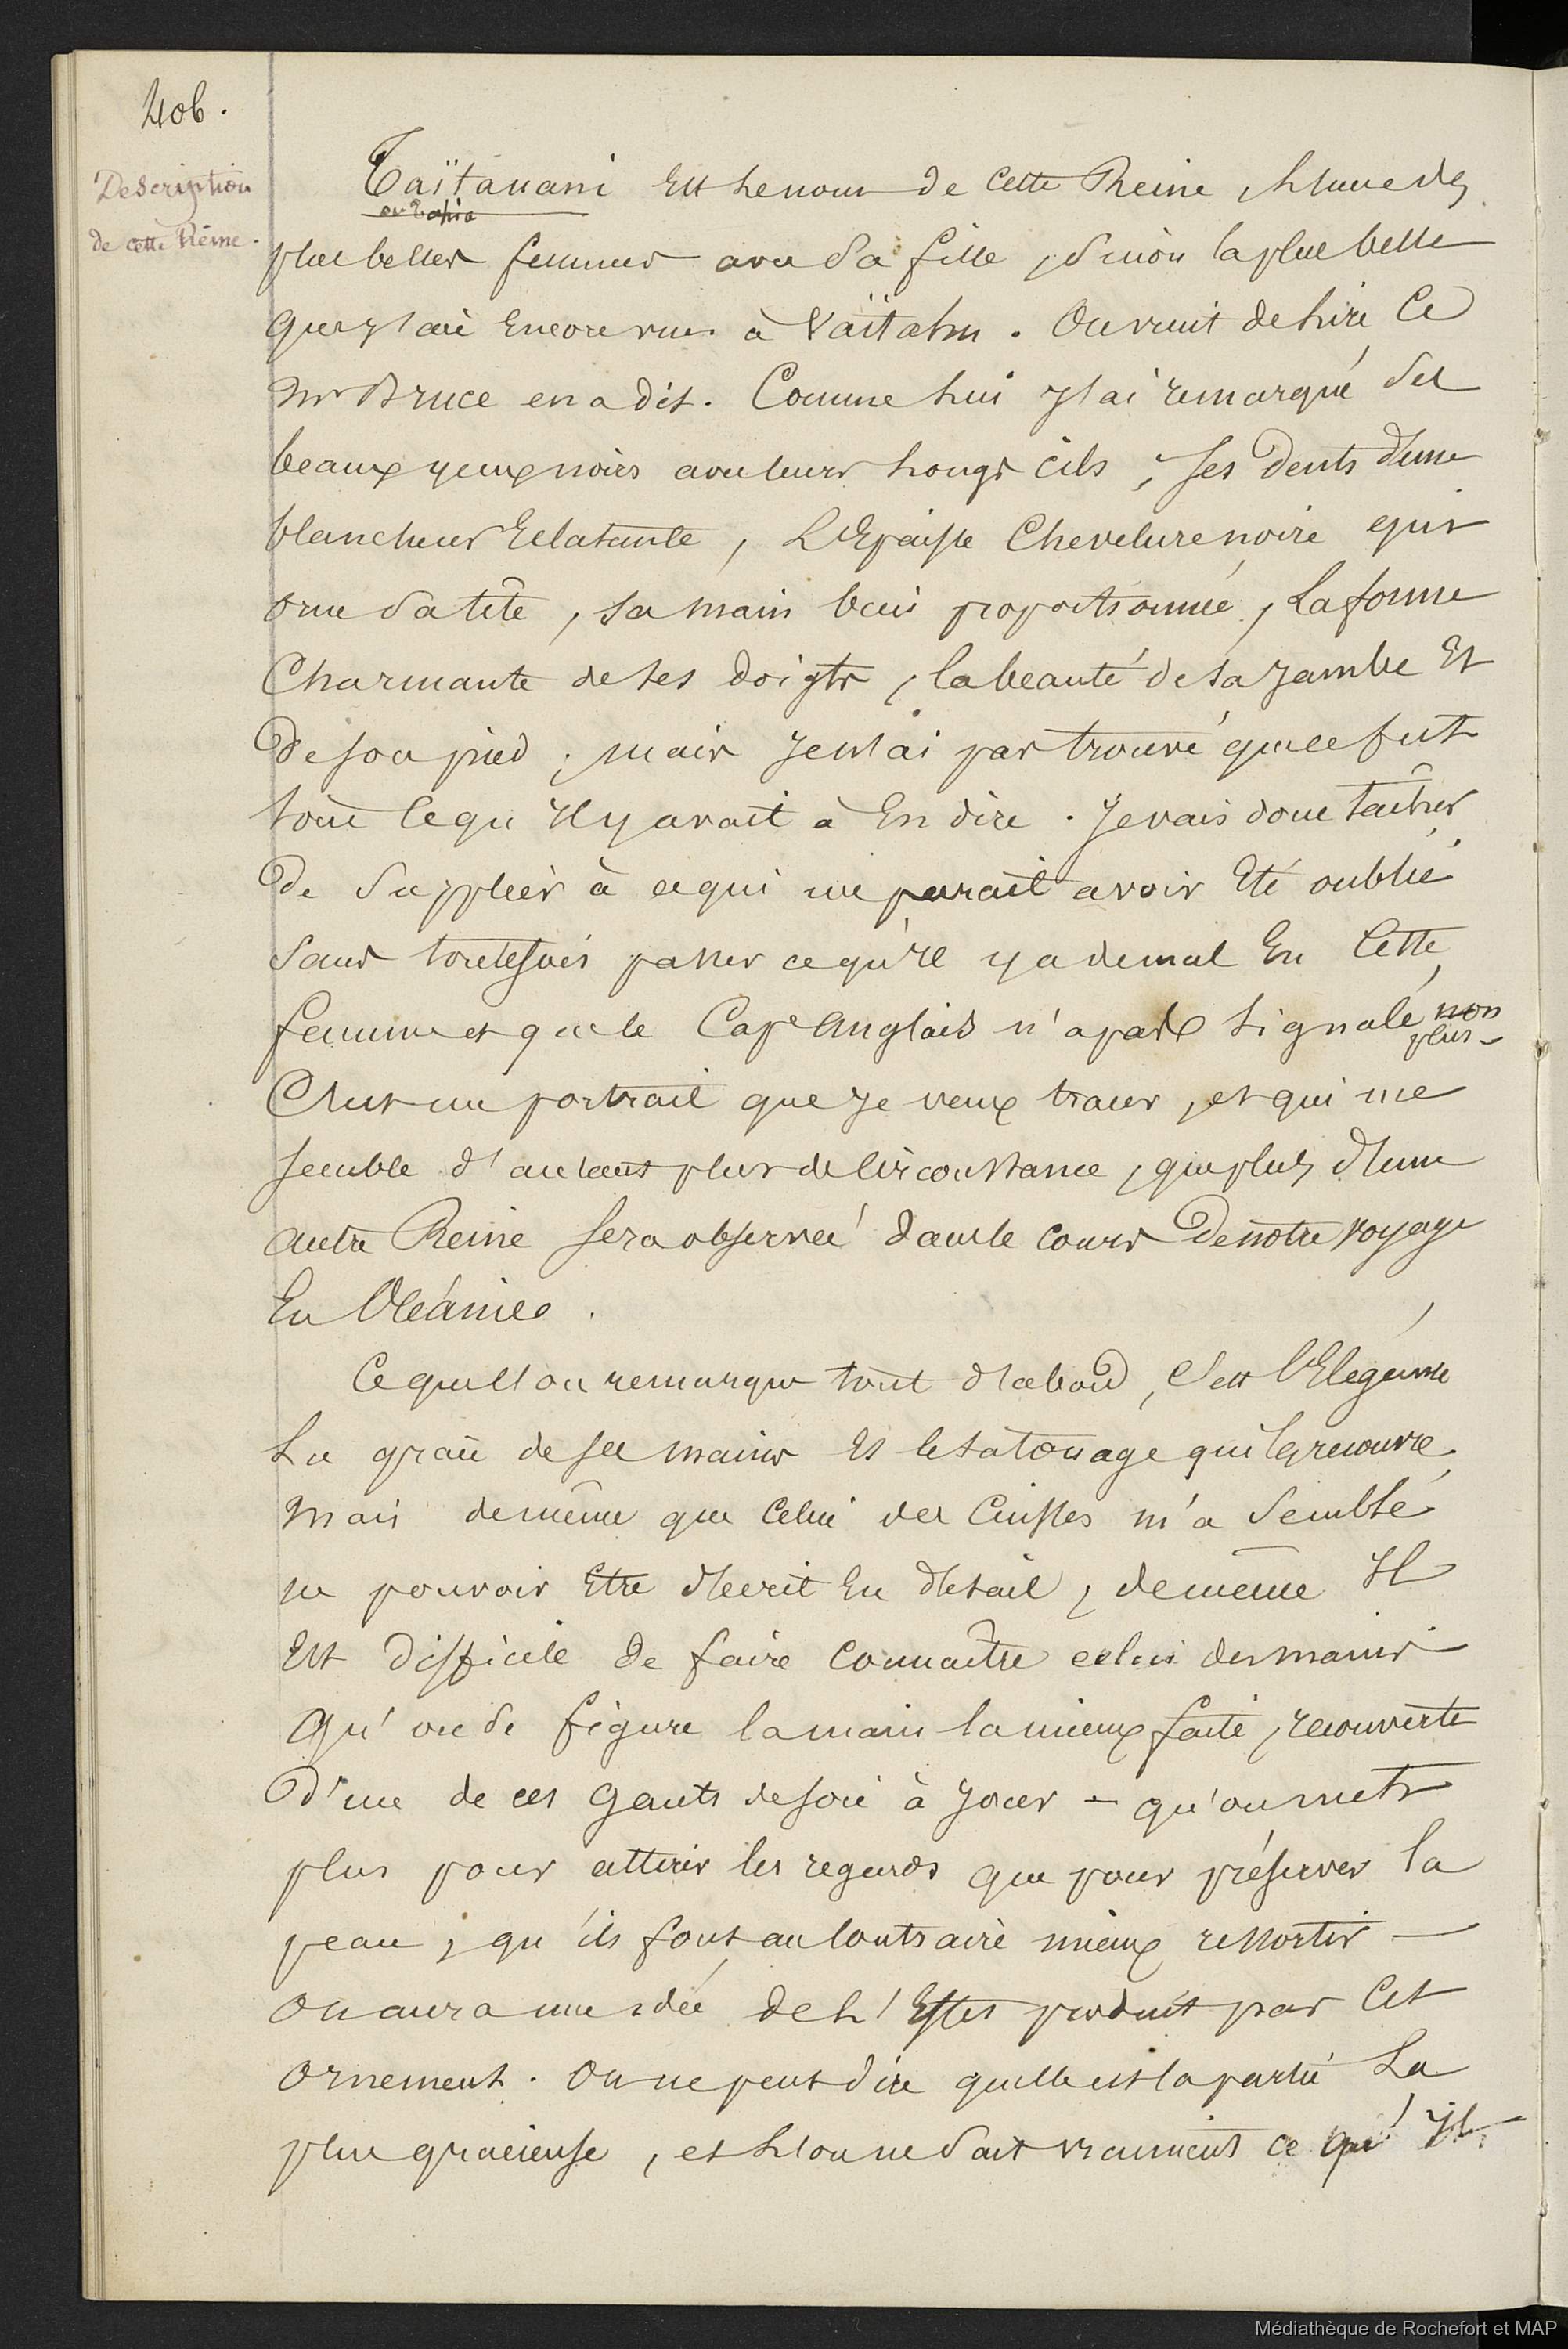 406.
Description
de cette Reine.
Taïtauani Est le nom de cette Reine, l'une des
ou Tahia
plus belles femmes avec sa fille, sinon la plus belle
que j'aie Encore vue à Vaïtahu. On vient de lire Ce
Mr Bruce en a dit. Comme lui j'ai remarqué ses
beaux yeux noirs avec leurs longs cils, ses Dents d'une
blancheur Eclatante, L'Epaisse Chevelure noire qui
orne Sa tête, sa main bien proportionnée, La forme
Charmante de ses doigts, la beauté de sa jambe Et
De son pied; mais je n'ai pas trouvé que ce fut
tout Ce qu'Il y avait à En dire. Je vais donc tacher
De Suppléer à ce qui me parait avoir Eté oublié
Sans toutefois passer ce qu'Il y a de mal En Cette
femme et que le Cape Anglais n'a pas signalé non
plus -
C'est un portrait que je veux tracer, et qui me
semble d'autant plus de Circonstance, que plus d'une
autre Reine sera observée dans le cours De notre voyage
En Océanie.
Ce que l'on remarque tout d'abord, C'est l'Elégance
La grace de ses mains Et le tatouage qui les recouvre.
Mais de même que Celui des Cuisses m'a Semblé
ne pouvoir Etre décrit En détail, de même Il
Est Difficile de faire Connaître celui des mains
Qu'on Se figure la main la mieux faite, recouverte
D'un de ces Gants de soie à jour - qu'on met
plus pour attirer les regards que pour préserver la
peau, qu'ils font au Contraire mieux ressortir -
On aura une idée de L'Effet produit par Cet
Ornement. On ne peut dire quelle est la partie La
plus gracieuse, et L'on ne Sait vraiment ce qu'Il
Médiathèque de Rochefort et MAP